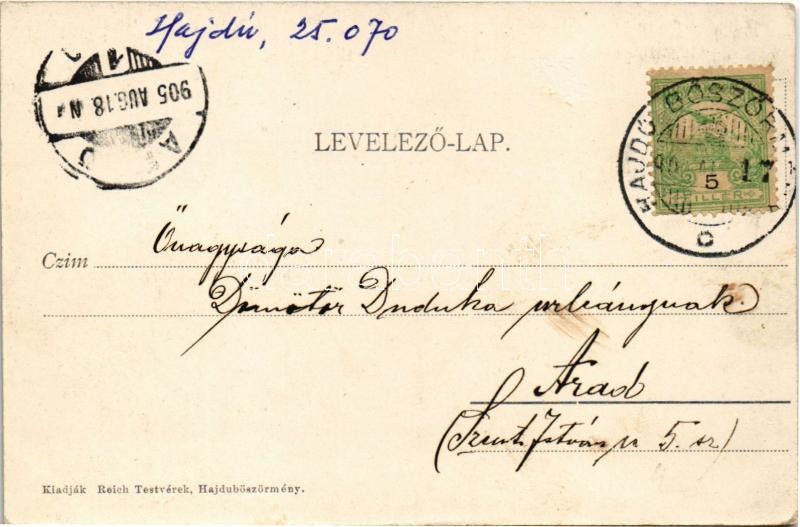 Hajdú, 25.070
905 AUG.18. N
ARAD
HAJDÚ-BÖSZÖRM
17
C
5
FILLÉR
LEVELEZŐ-LAP.
Czim Önagysága
Dömötör Duduka urleánynak
Arad
(Szent István u 5. sz)
Kiadják Reich Testvérek, Hajduböszörmény.